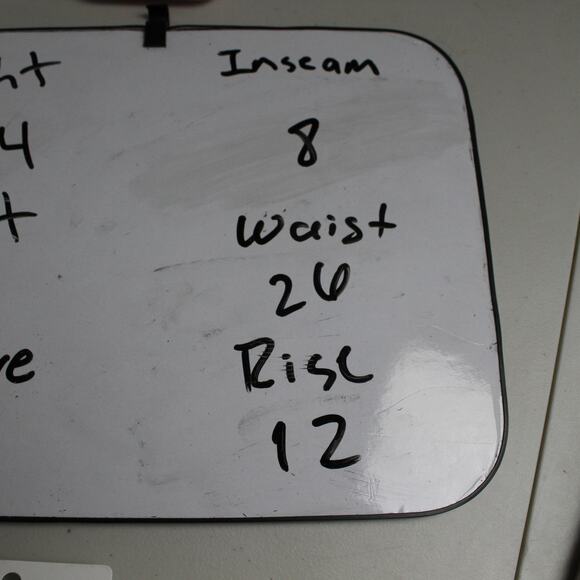 ht
Inseam
4
8
t
Waist
26
ve
Rise
12